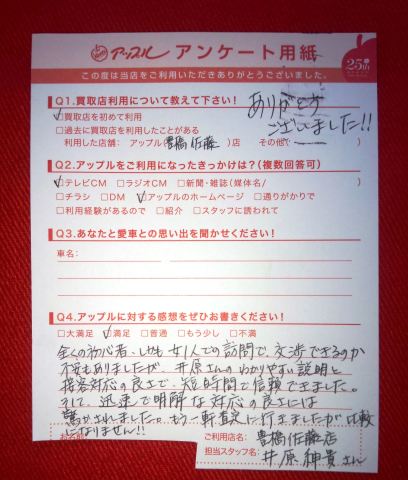 アップル アンケート用紙
25th
この度は当店をご利用いただきありがとうございました。
Q1.買取店利用について教えて下さい!
ありがとう
ございました!!
☑買取店を初めて利用
□過去に買取店を利用したことがある
利用した店舗: アップル(豊橋佐藤)店 その他( )
Q2.アップルをご利用になったきっかけは?(複数回答可)
☑テレビCM □ラジオCM □新聞・雑誌(媒体名/ )
□チラシ □DM ☑アップルのホームページ □通りがかりで
□利用経験があるので □紹介 □スタッフに誘われて
Q3.あなたと愛車との思い出を聞かせてください!
車名:
Q4.アップルに対する感想をぜひお書きください!
□大満足 ☑満足 □普通 □もう少し □不満
全くの初心者、しかも女1人での訪問で、交渉できるのか
不安もありましたが、井原さんのわかりやすい説明と
接客対応の良さで、短時間で信頼できました。
そして、迅速で明解な対応の良さには
驚かされました。もう一軒査定に行きましたが比較
になりません!!
お名前
ご利用店名: 豊橋佐藤店
担当スタッフ名: 井原紳貴さん